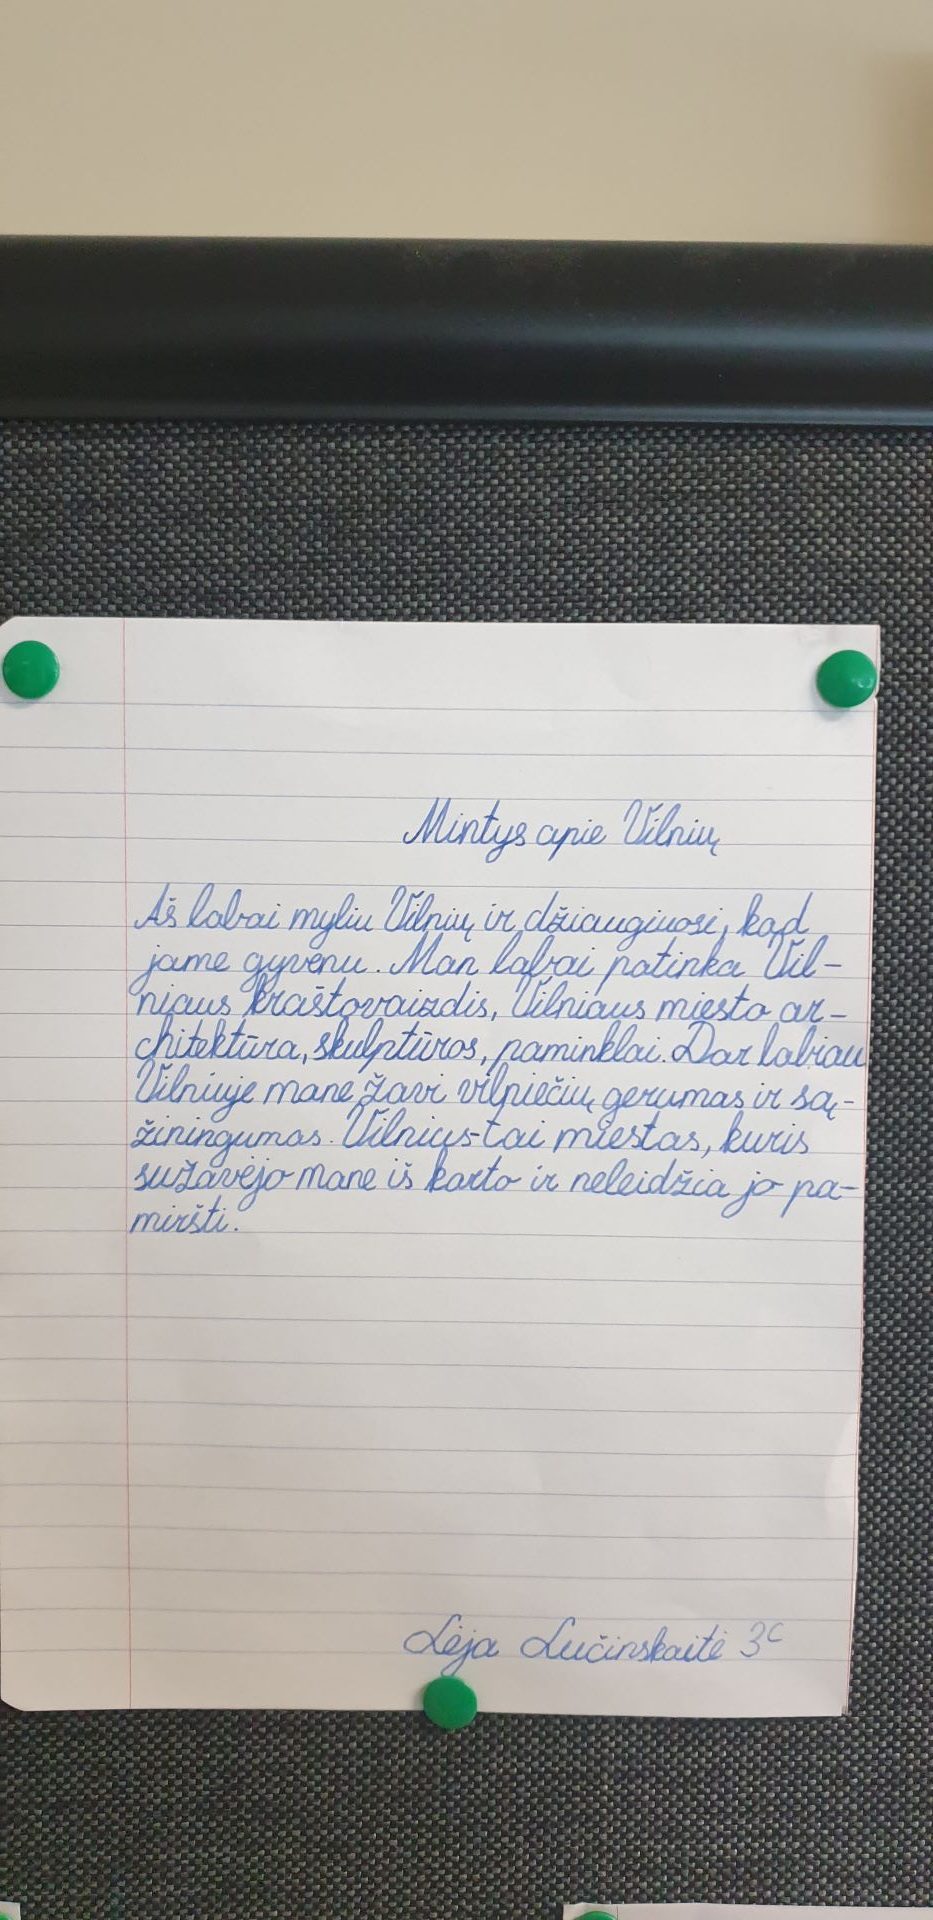 Mintys apie Vilnių
Aš labai myliu Vilnių ir džiaugiuosi, kad
jame gyvenu. Man labai patinka Vil-
niaus kraštovaizdis, Vilniaus miesto ar-
chitektūra, skulptūros, paminklai. Dar labiau
Vilniuje mane žavi vilniečių gerumas ir są-
žiningumas. Vilnius-tai miestas, kuris
sužavėjo mane iš karto ir neleidžia jo pa-
miršti.
Lėja Lučinskaitė 3c